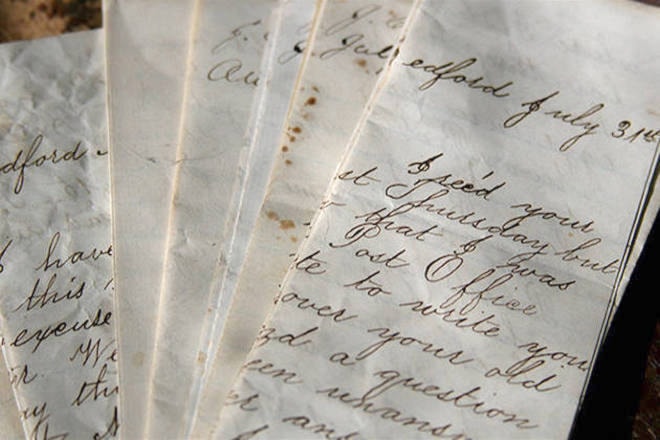 dford
I have
this
excuse
r. We
my th
J.
Au
J.
J. Jul
edford July 31st
I rec'd your
st Thursday but
r that I was
Post Office
te to write you
over your old
zd a question
een unansw
er an